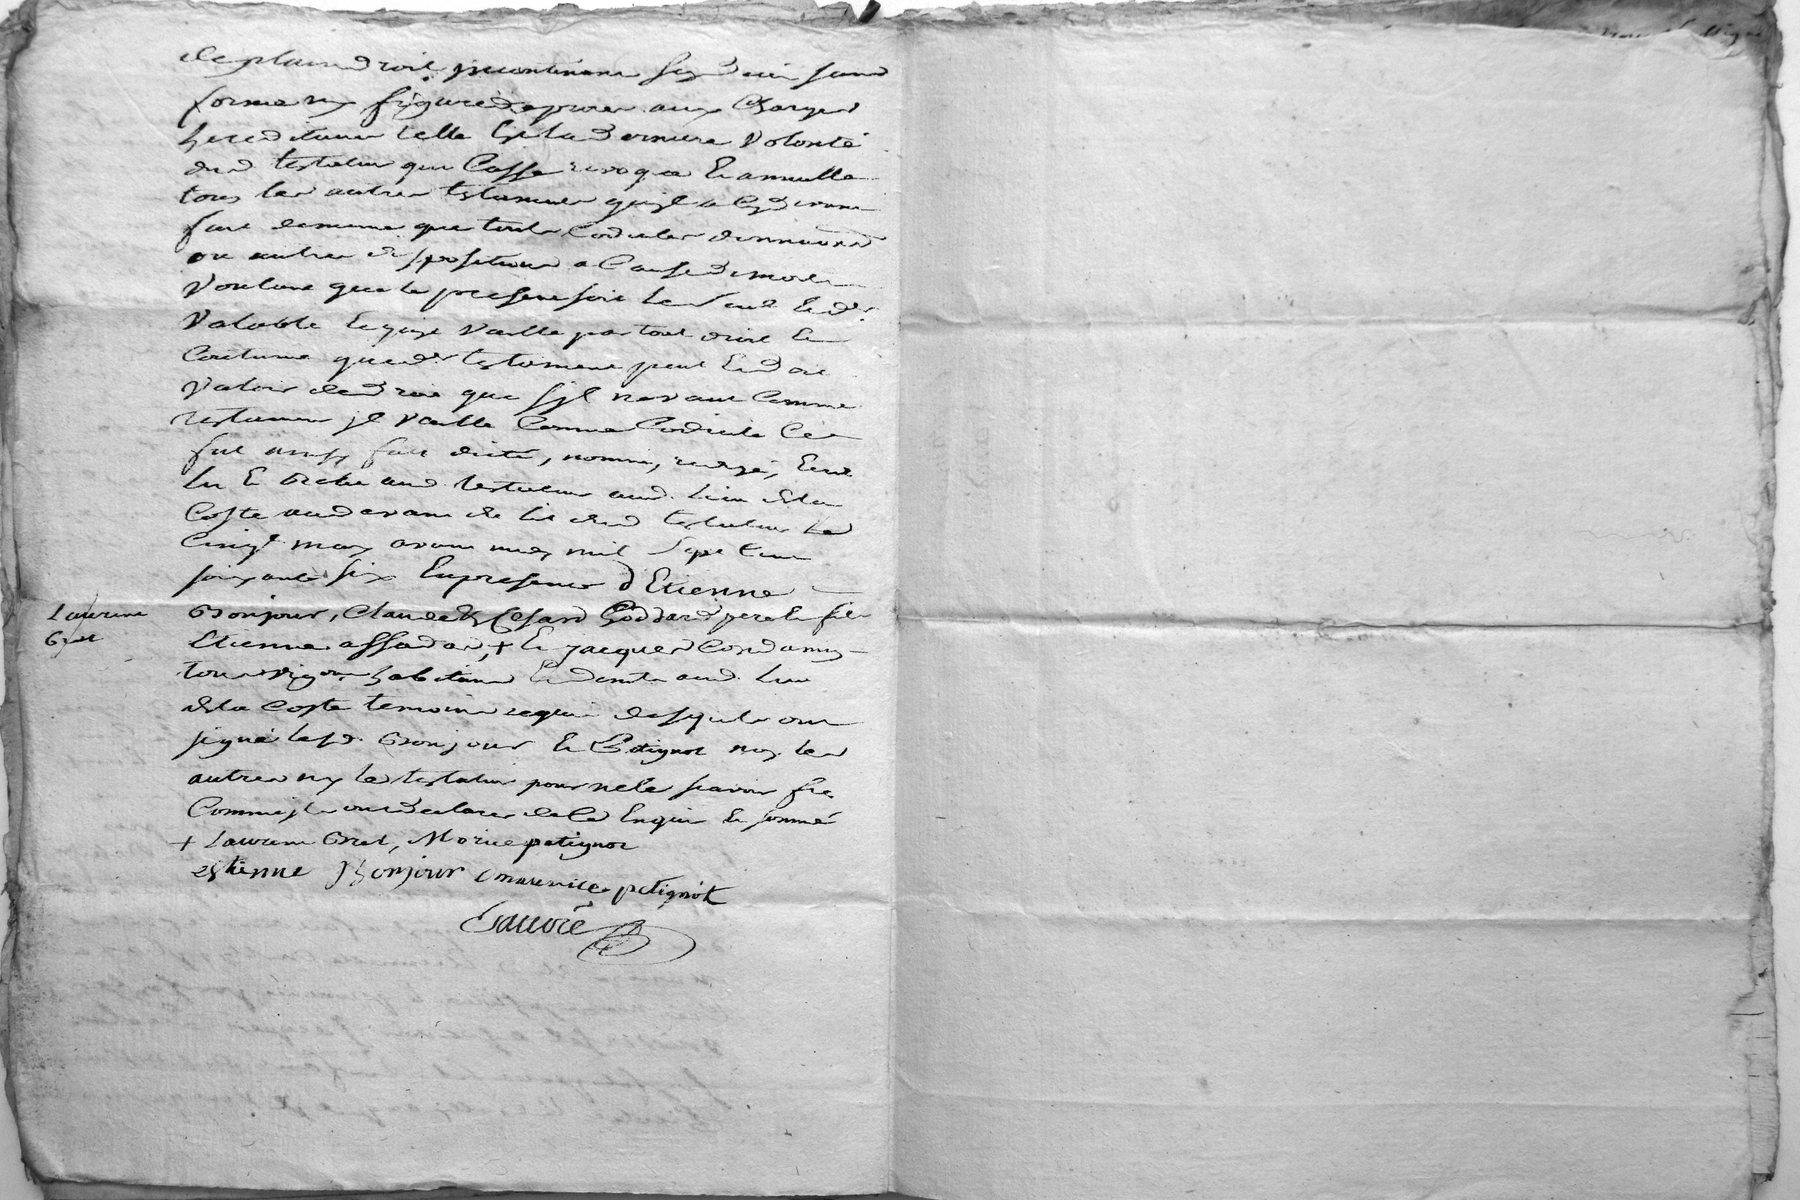 de plain droit incontinant son deces sans
forme ny figure de proces aux charges
hereditaires telle est la derniere volonté
dud testateur qui casse revoque et annulle
tous les autres testamens qu'il a cy devant
fait de meme que touts codiciles donnations
ou autres dispositions a cause de mort
voulant que le present soit le seul et
valable et qu'il vaille par tout droit et
coutume que der testament peut et doit
valoir de droit que s'yl ne vaut comme
testament jl vaille comme codicile Ce
fut ainsy fait dicté, nommé, redigé, Ecrit
lu et aud testateur aud. lieu de la
Coste au devant de lit dud testateur le
Cinq may avant midy mil sept cent
soixante six En presence d'Etienne
Laurent
Grat
Bonjour, Claude & Cesard Goddard pere et fils
Etienne assadat, + et jacques Condamy
tous habitans aud. lieu
de la Coste temoins requis desquels ont
signé lesd. Bonjour et Petignot non les
autres ny le testateur pour ne le scavoir
Comme ils ont declaré de ce Enquis et sommé
+ Laurent Grat, Morice petignot
estienne Bonjour maurice petignot